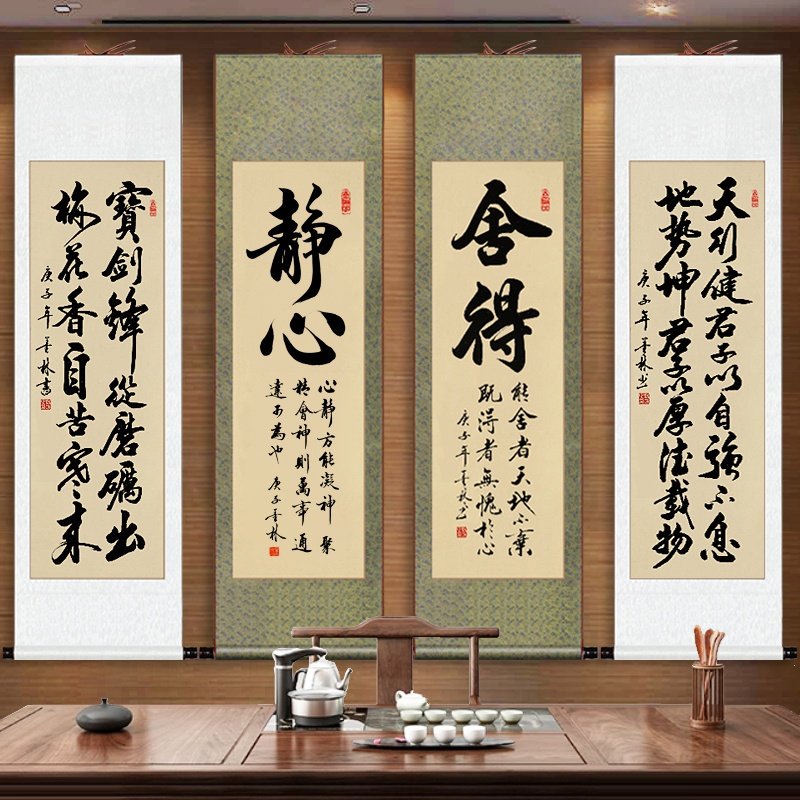 寶劍鋒從磨礪出
梅花香自苦寒来
庚子年墨林書
静心
心静方能凝神聚
精會神則萬事通
達可為也 庚子墨林
舍得
能舍者天地不棄
既得者無愧於心
庚子年墨林书
天行健君子以自强不息
地势坤君子以厚德載物
庚子年墨林书